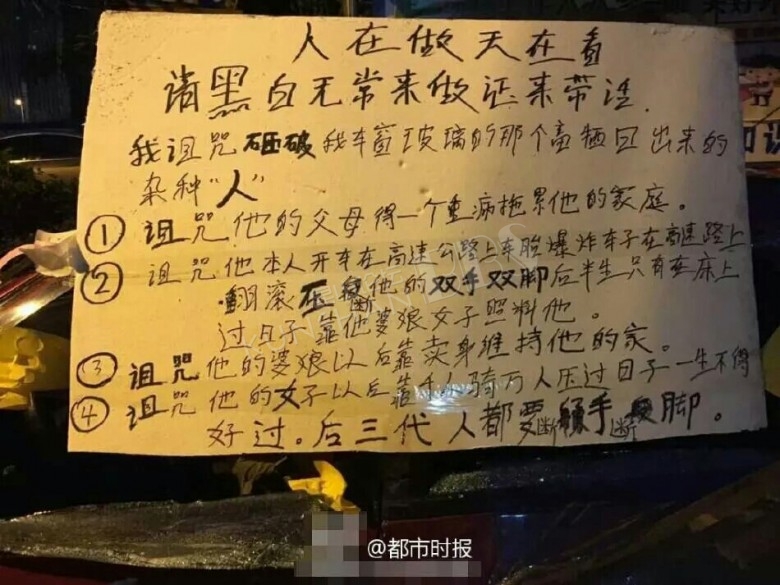 人在做天在看
请黑白无常来做证来带话.
我诅咒砸破我车窗玻璃的那个畜牲日出来的
杂种“人”
① 诅咒他的父母得一个重病拖累他的家庭。
② 诅咒他本人开车在高速公路上车胎爆炸车子在高速路上
翻滚压断他的双手双脚后半生只有在床上
过日子靠他婆娘女子照料他。
③ 诅咒他的婆娘以后靠卖身维持他的家。
④ 诅咒他的女子以后靠千人骑万人压过日子一生不得
好过。后三代人都要断手断脚。
@都市时报